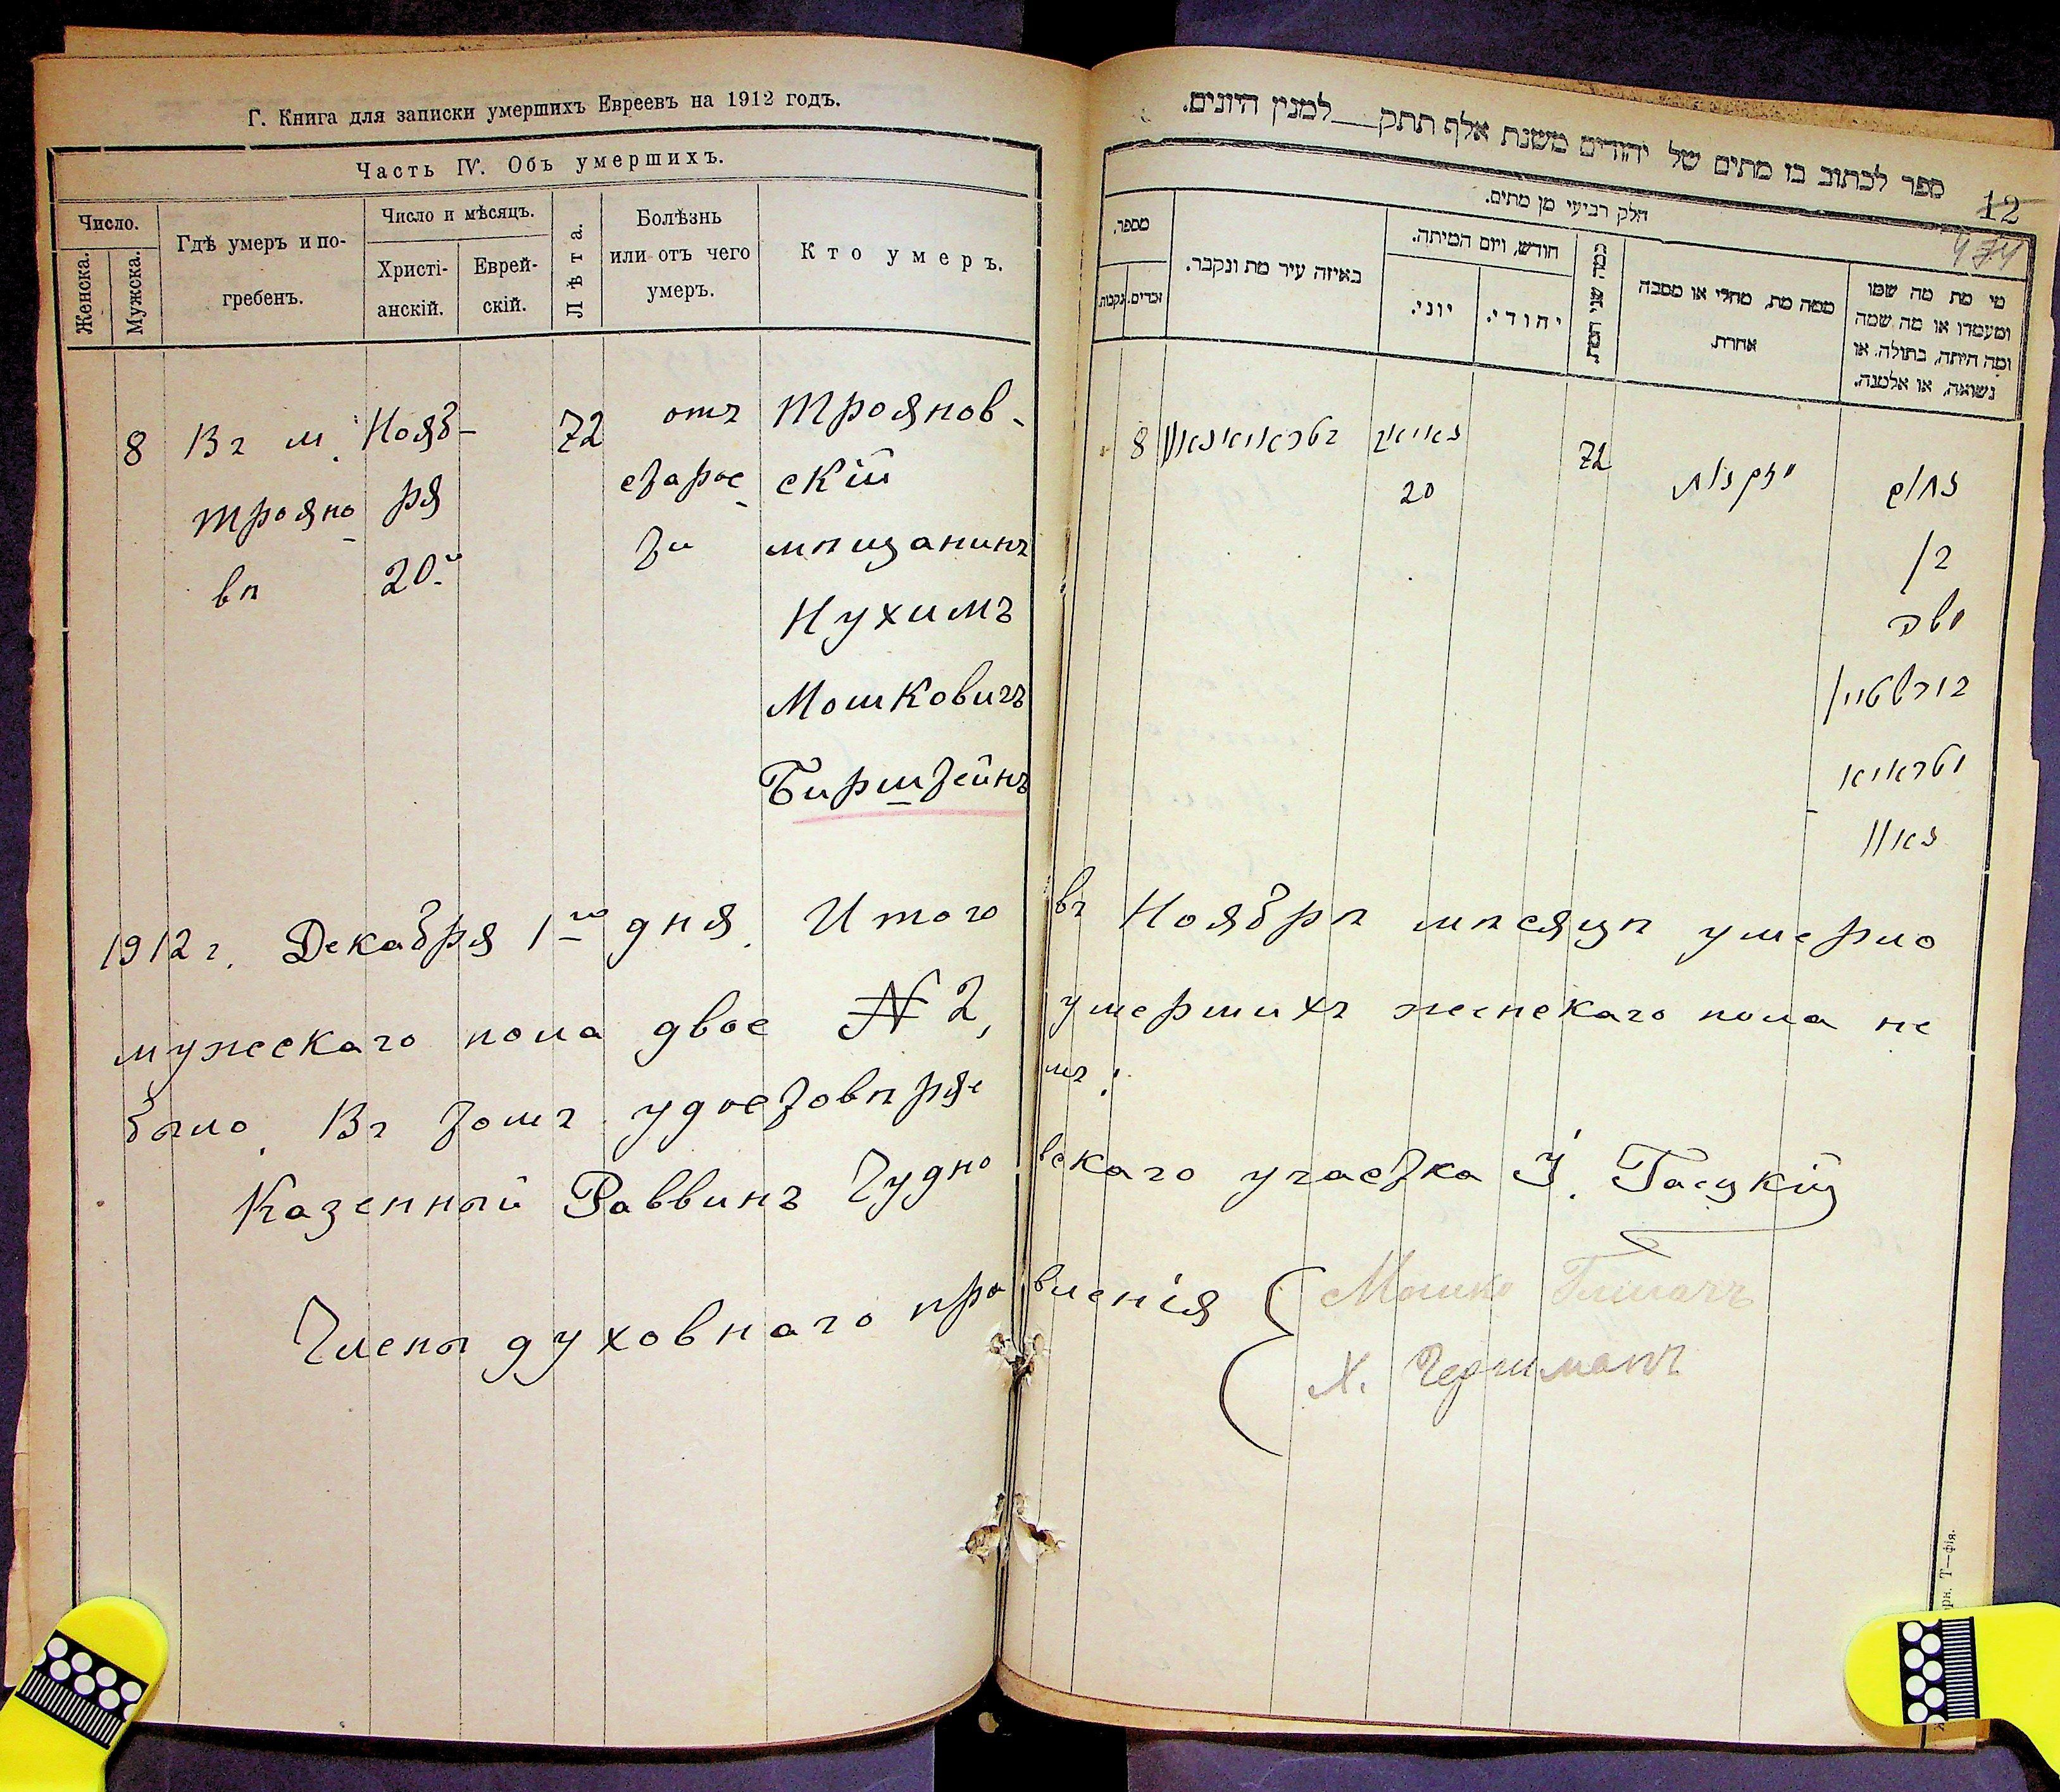 Г. Книга для записки умершихъ Евреевъ на 1912 годъ.
Часть IV. Объ умершихъ.
Число.
Женска.
Мужска.
Гдѣ умеръ и по-
гребенъ.
Число и мѣсяцъ.
Христі-
анскій.
Еврей-
скій.
Лѣта.
Болѣзнь
или отъ чего
умеръ.
Кто умеръ.
8
Въ м.
Трояно
вѣ
Нояб-
ря
20го
72
отъ
старос
ти
Троянов-
скій
мѣщанинъ
Нухимъ
Мошковичъ
Бирштейнъ
ספר לכתוב בו מתים של יהודים משנת אלף תתק__למנין היונים.
12
474
חלק רביעי מן מתים.
מספר.
נקבות.
זכרים.
באיזה עיר מת ונקבר.
חודש, ויום המיתה.
יוני.
יהודי.
כמה שני המת
ממה מת, מחלי או מסבה
אחרת.
מי מת מה שמו
ומעמדו או מה שמה
ומה היתה, בתולה, או
נשואה, או אלמנה.
8
20
72
מזקנות
נחום
בן
משה
בירשטיין
1912 г. Декабря 1го дня. Итого въ Ноябрѣ мѣсяцѣ умерло
мужескаго пола двое № 2, умершихъ женскаго пола не
было. Въ томъ удостовѣряемъ:
Казенный Раввинъ Чудновскаго участка І. Гасцкій
Члены духовнаго правленія
Мошко
Х.